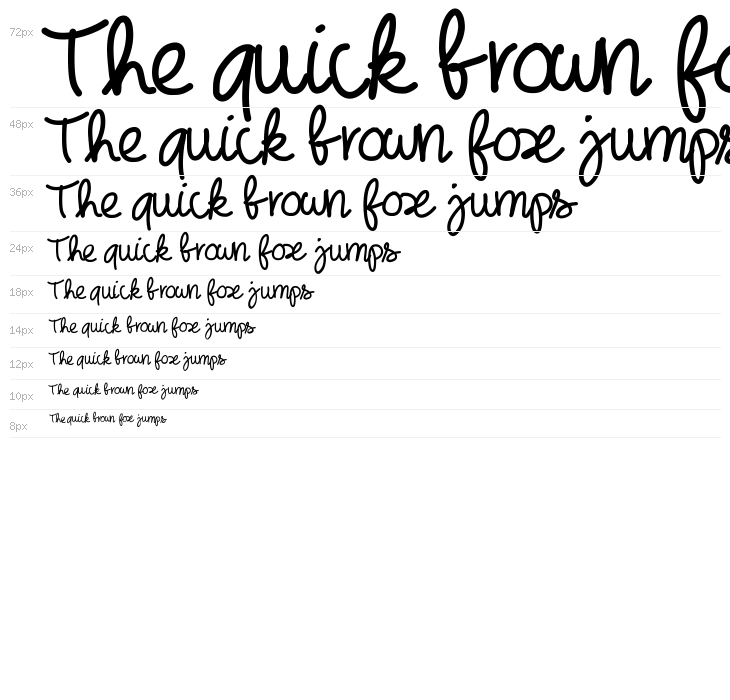 72px The quick brown fo
48px The quick brown fox jumps
36px The quick brown fox jumps
24px The quick brown fox jumps
18px The quick brown fox jumps
14px The quick brown fox jumps
12px The quick brown fox jumps
10px The quick brown fox jumps
8px The quick brown fox jumps